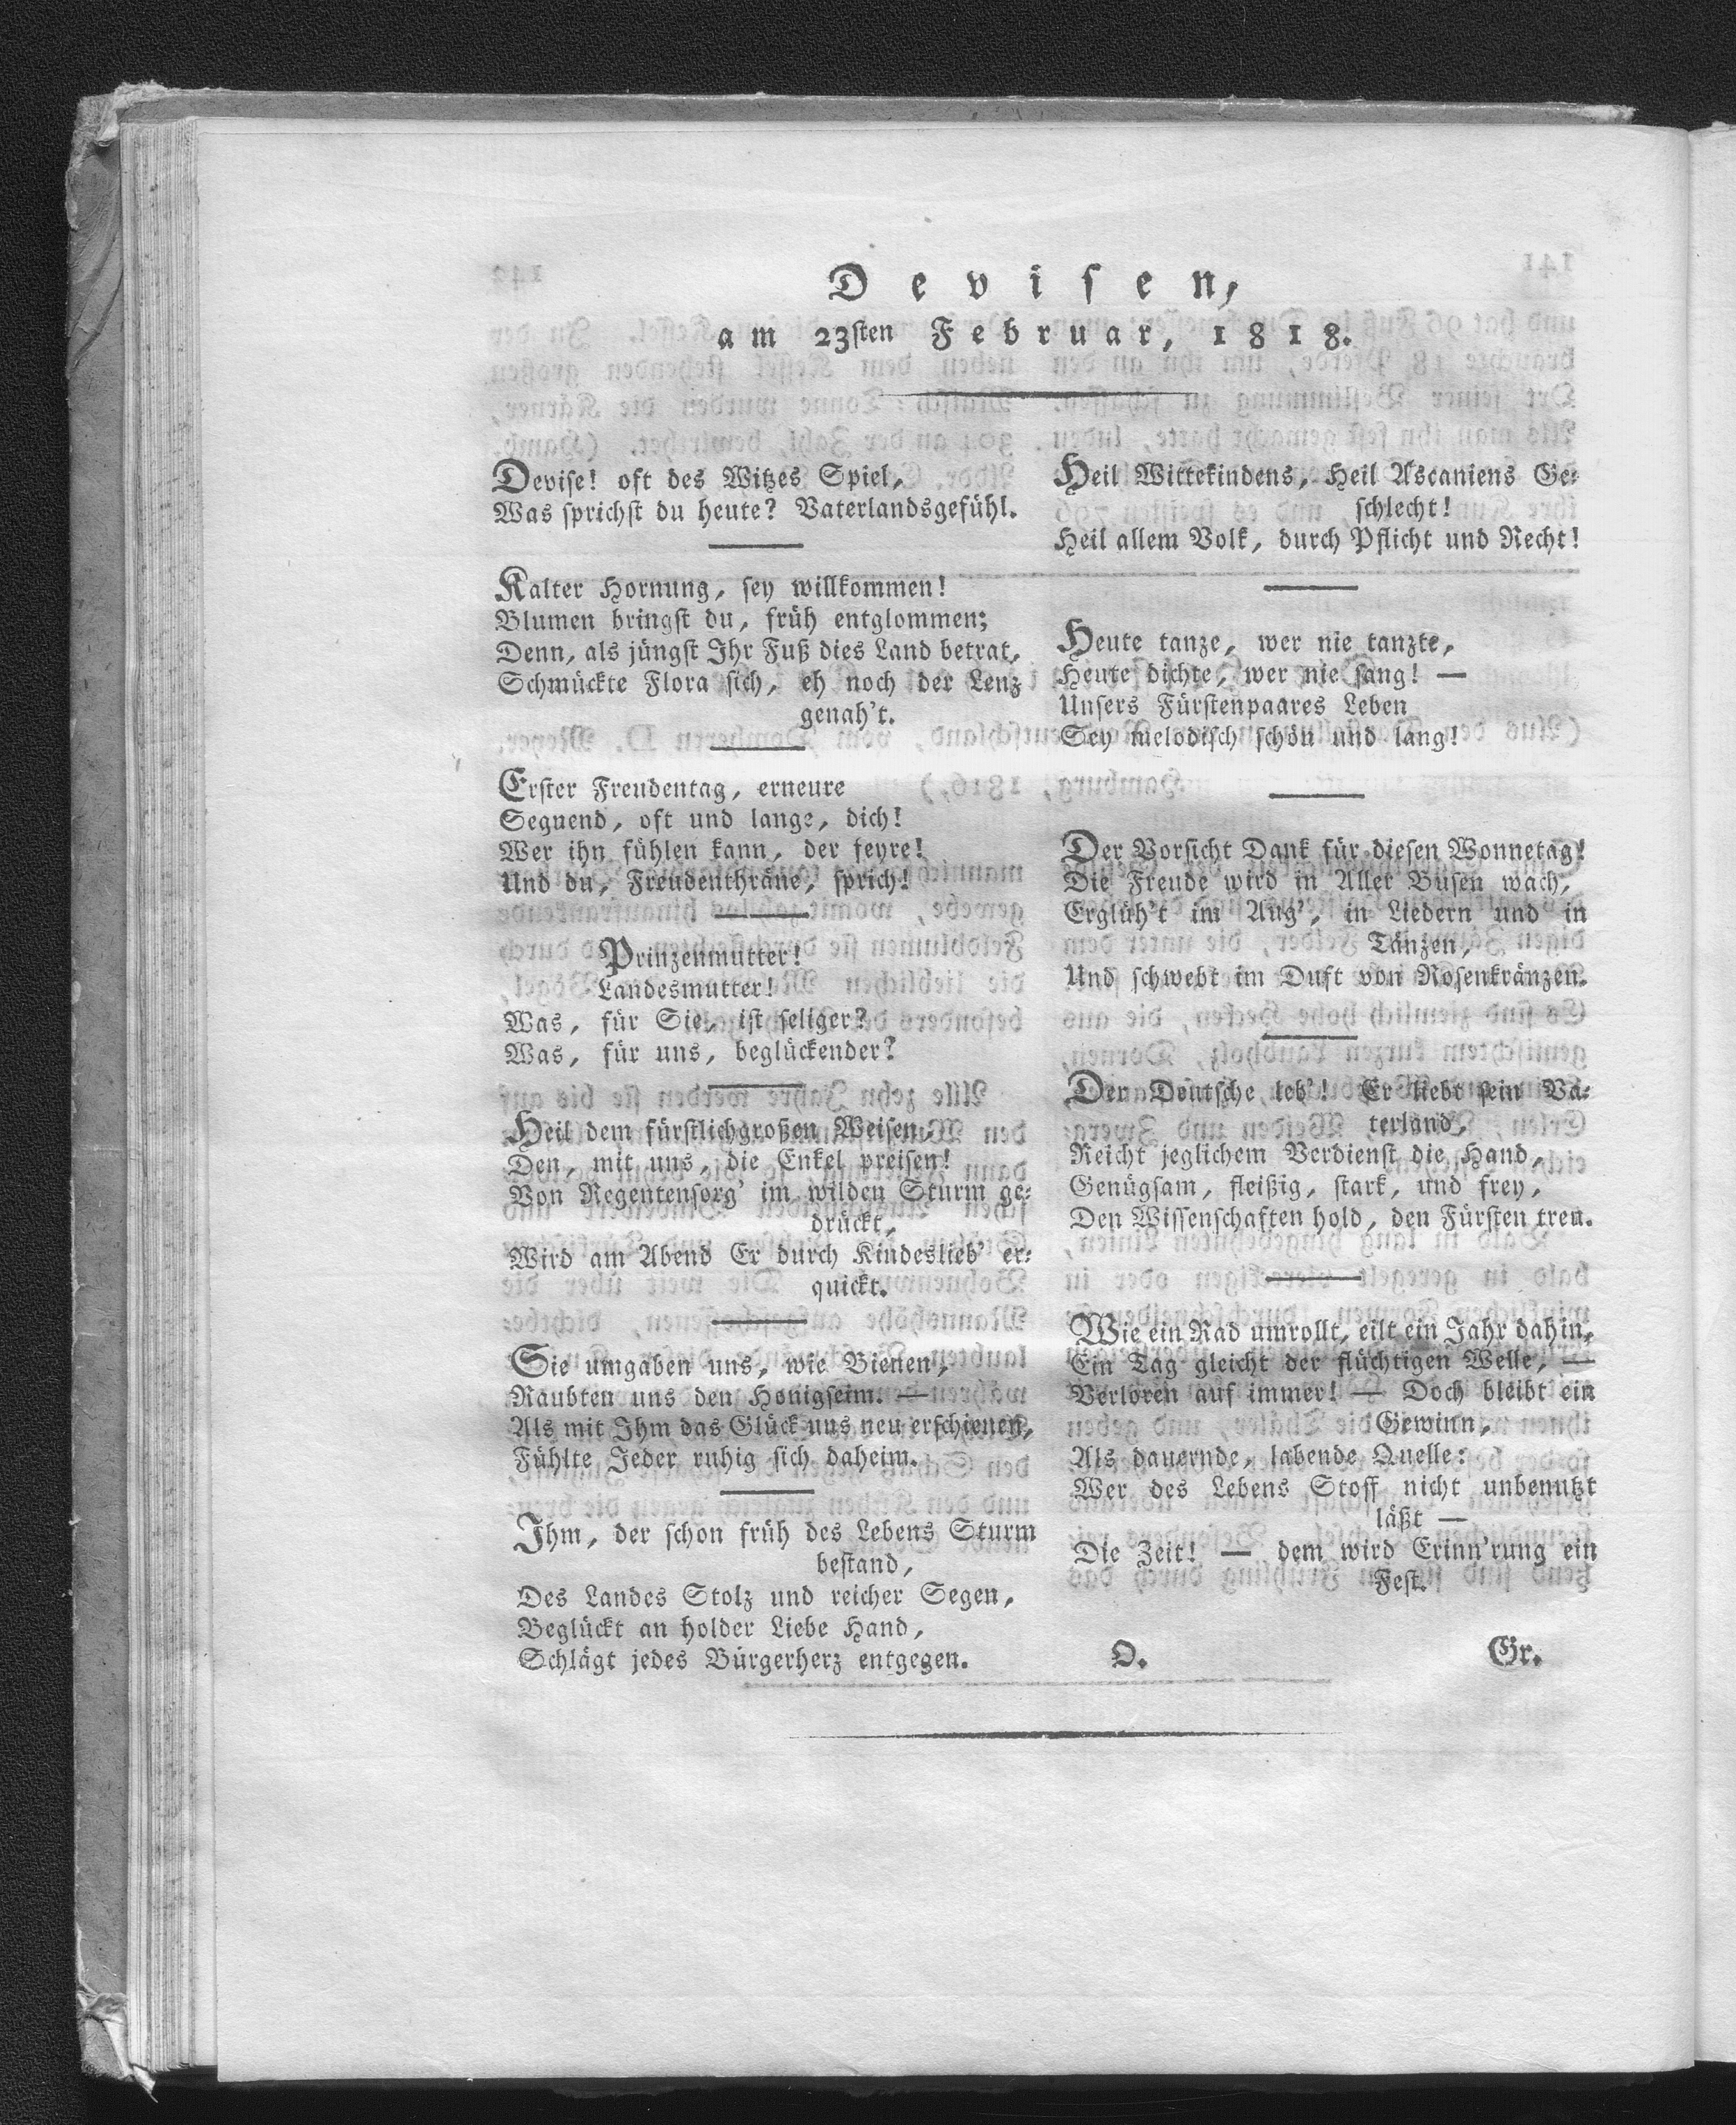 Devisen,
am 23sten Februar, 1818.
Devise! oft des Witzes Spiel,
Was sprichst du heute? Vaterlandsgefühl.
Kalter Hornung, sey willkommen!
Blumen bringst du, früh entglommen;
Denn, als jüngst Ihr Fuß dies Land betrat,
Schmückte Flora sich, eh noch der Lenz
genah't.
Erster Freudentag, erneure
Segnend, oft und lange, dich!
Wer ihn fühlen kann, der feyre!
Und du, Freudenthräne, sprich!
Prinzenmutter!
Landesmutter!
Was, für Sie, ist seliger?
Was, für uns, beglückender?
Heil dem fürstlichgroßen Weisen,
Den, mit uns, die Enkel preisen!
Von Regentensorg' im wilden Sturm ge-
drückt,
Wird am Abend Er durch Kindeslieb' er-
quickt.
Sie umgaben uns, wie Bienen,
Raubten uns den Honigseim. —
Als mit Ihm das Glück uns neu erschienen,
Fühlte Jeder ruhig sich daheim.
Ihm, der schon früh des Lebens Sturm
bestand,
Des Landes Stolz und reicher Segen,
Beglückt an holder Liebe Hand,
Schlägt jedes Bürgerherz entgegen.
Heil Wittekindens, Heil Ascaniens Ge-
schlecht!
Heil allem Volk, durch Pflicht und Recht!
Heute tanze, wer nie tanzte,
Heute dichte, wer nie sang! —
Unsers Fürstenpaares Leben
Sey melodisch schön und lang!
Der Vorsicht Dank für diesen Wonnetag!
Die Freude wird in Aller Busen wach,
Erglüh't im Aug', in Liedern und in
Tänzen,
Und schwebt im Duft von Rosenkränzen.
Der Deutsche leb'! Er liebt sein Va-
terland,
Reicht jeglichem Verdienst die Hand,
Genügsam, fleißig, stark, und frey,
Den Wissenschaften hold, den Fürsten treu.
Wie ein Rad umrollt, eilt ein Jahr dahin,
Ein Tag gleicht der flüchtigen Welle, —
Verloren auf immer! — Doch bleibt ein
Gewinn,
Als dauernde, labende Quelle:
Wer des Lebens Stoff nicht unbenutzt
läßt —
Die Zeit! — dem wird Erinn'rung ein
Fest.
O. Gr.